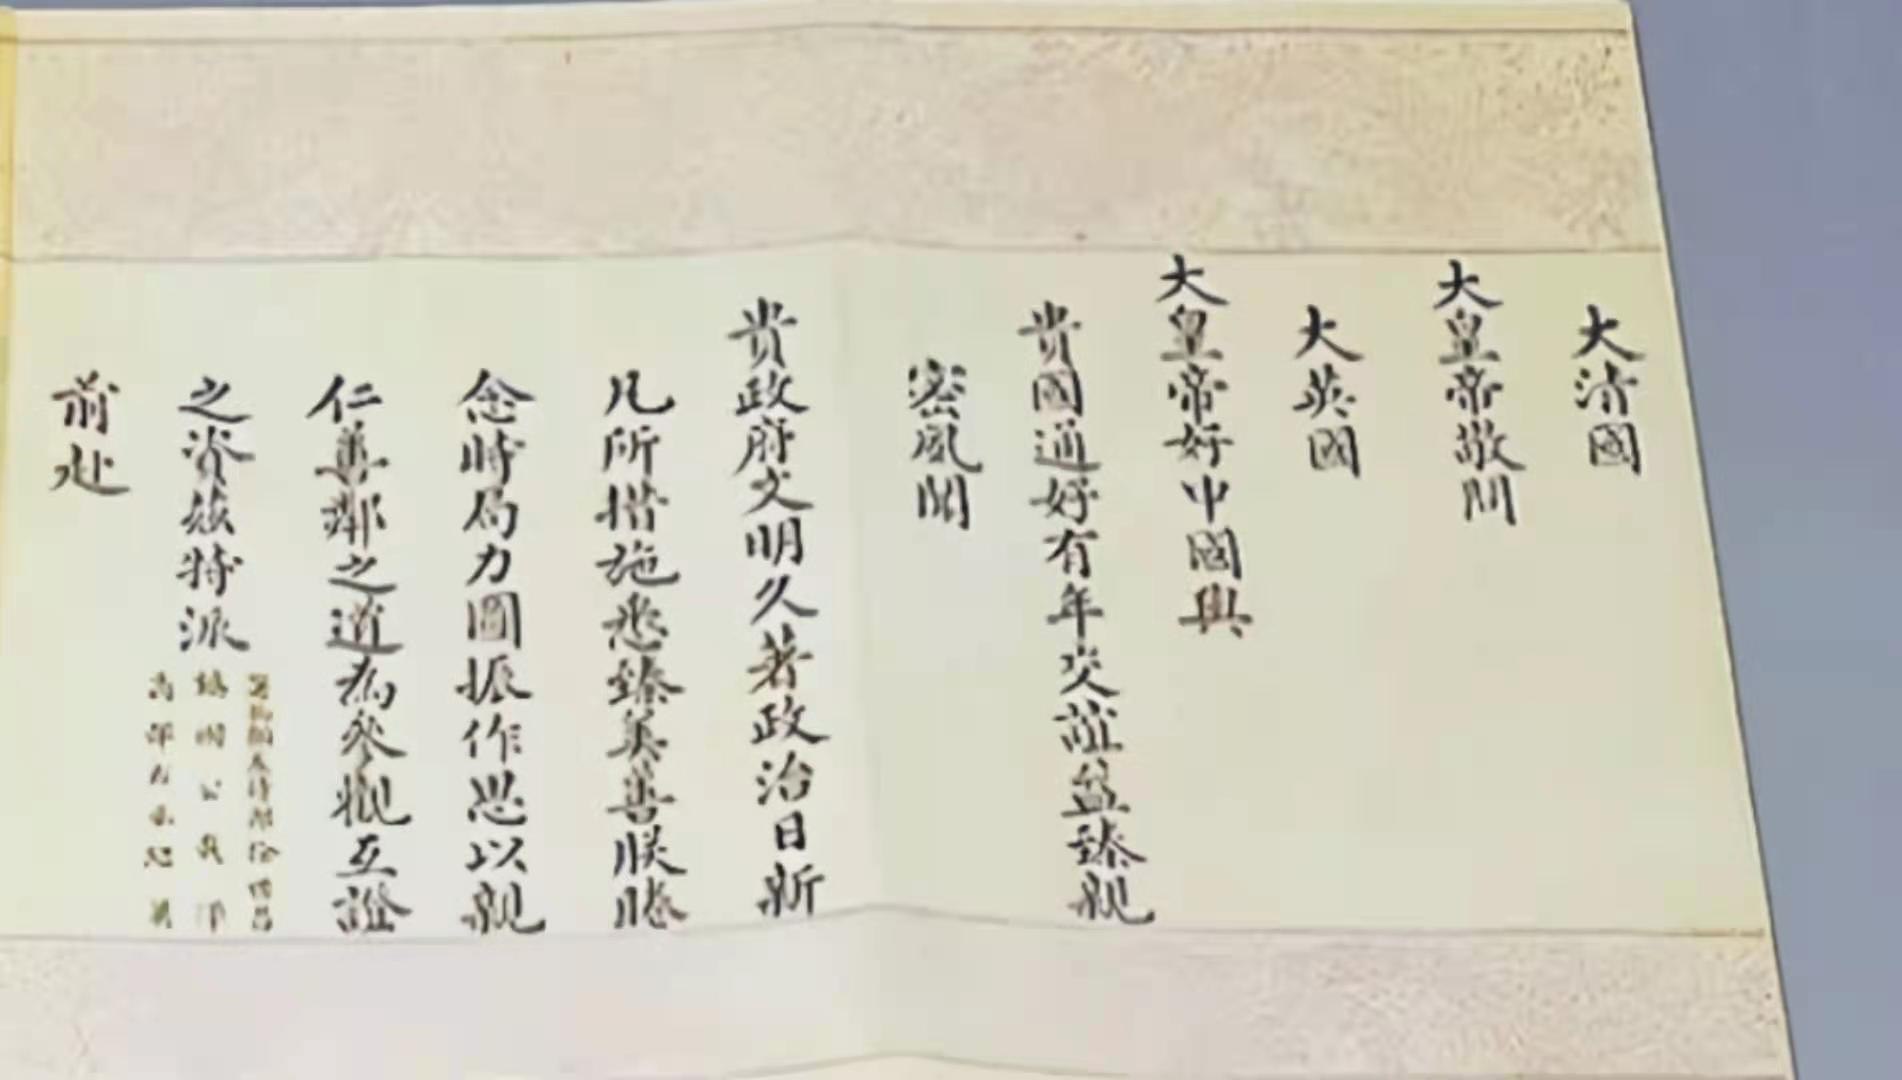 大清國
大皇帝敬問
大英國
大皇帝好中國與
貴國通好有年交誼益臻親
密風聞
貴政府文明久著政治日新
凡所措施悉臻美善朕眷
念時局力圖振作思以親
仁善鄰之道為參觀互證
之資茲特派
前赴